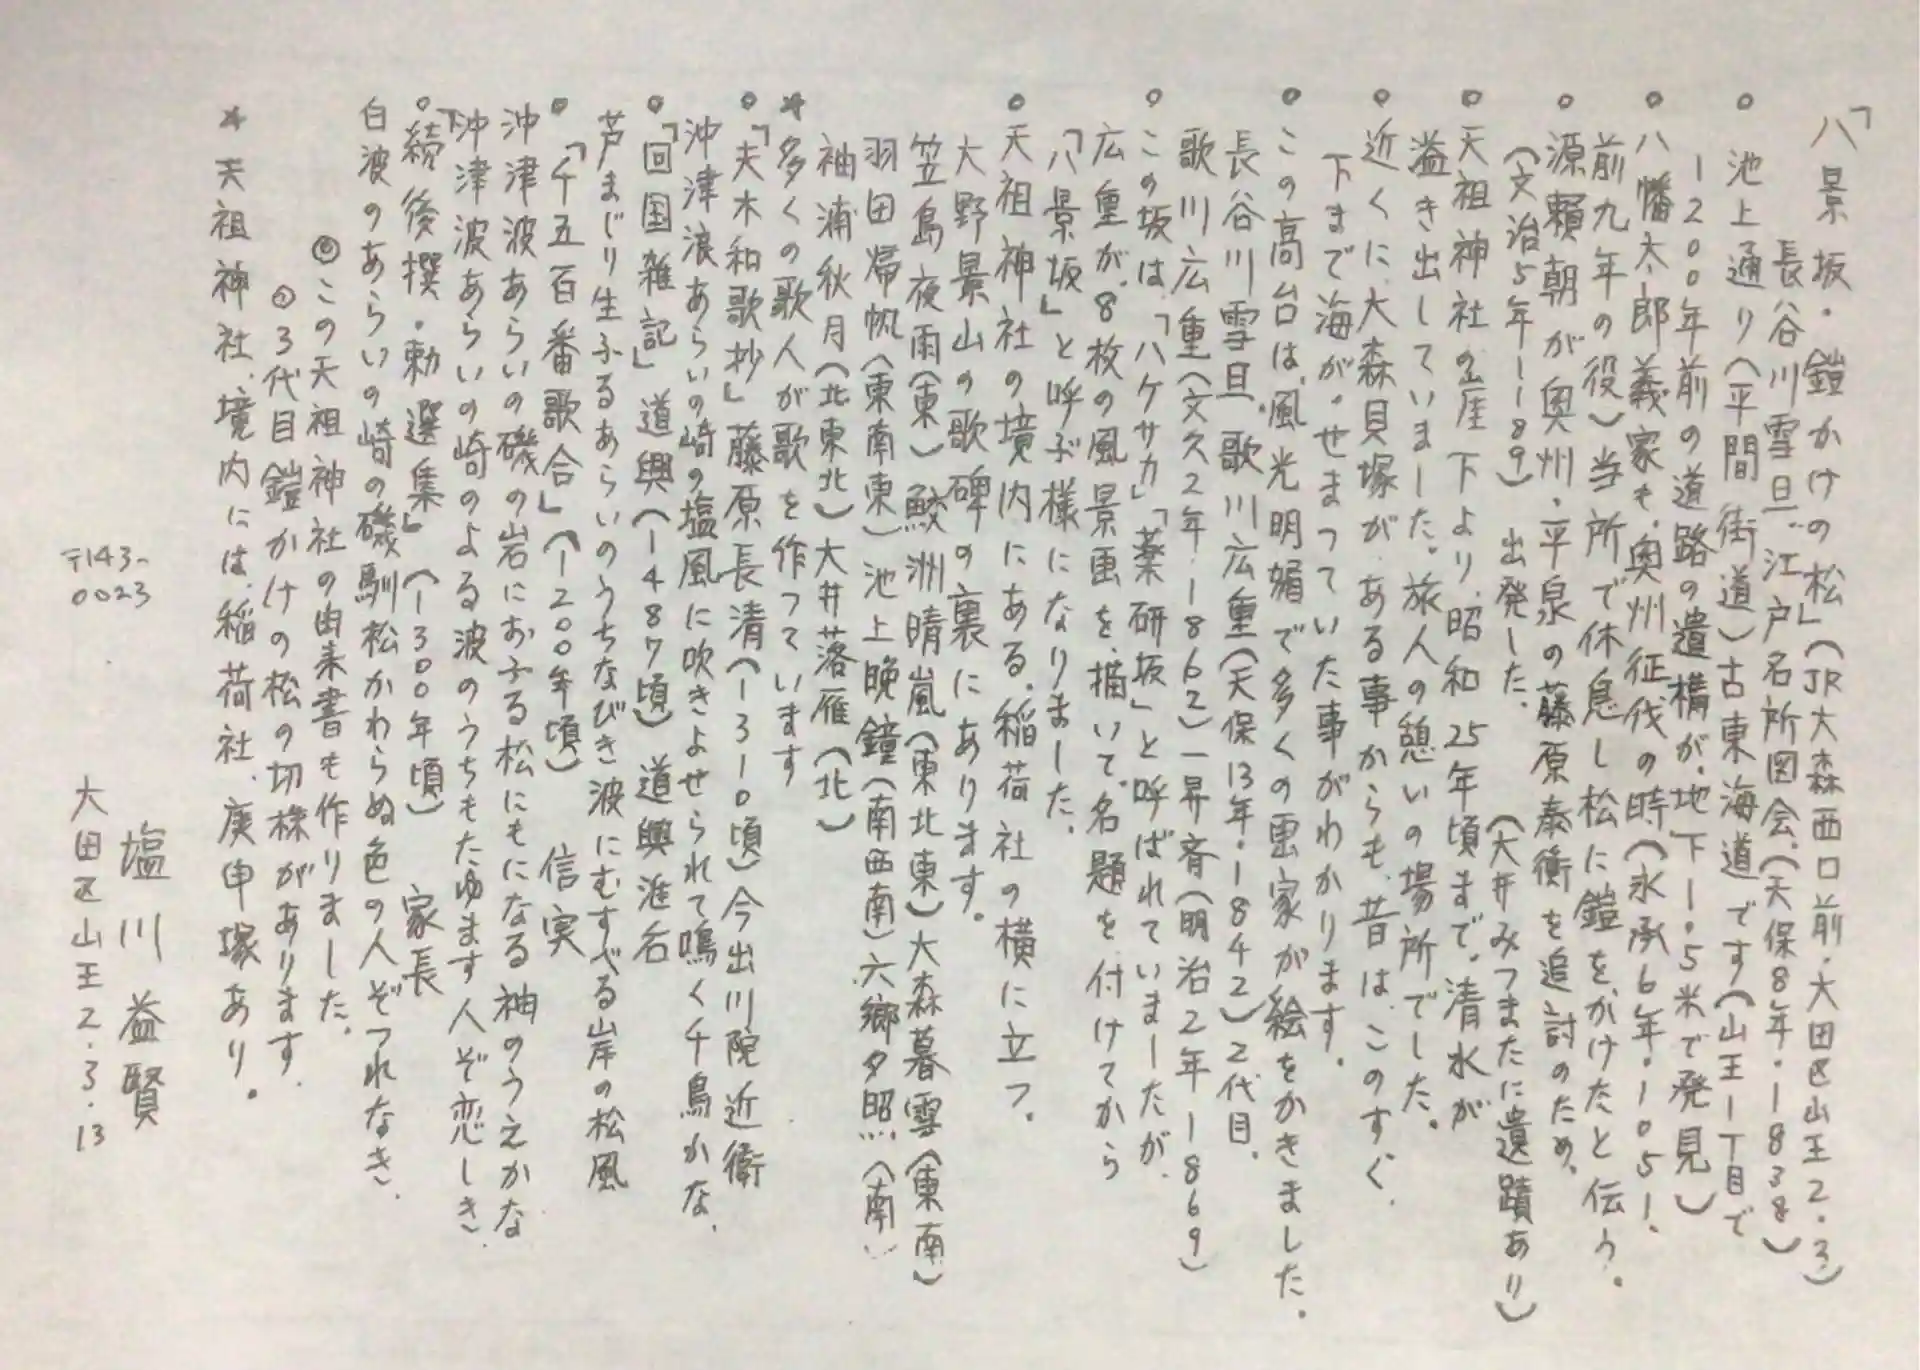 「八景坂・鎧かけの松」(JR大森西口前・大田区山王2.3)
長谷川雪旦、江戸名所図会、(天保8年・1838)
○池上通り(平間街道)古東海道です(山王1丁目で
1200年前の道路の遺構が、地下1.5米で発見)
○八幡太郎義家も、奥州征伐の時(永承6年・1051、
前九年の役)当所で休息し松に鎧をかけたと伝う。
○源頼朝が奥州・平泉の藤原泰衡を追討のため、
(文治5年1189)出発した、(大井みつまたに遺蹟あり)
○天祖神社の崖下より、昭和25年頃まで、清水が
溢き出していました。旅人の憩いの場所でした。
○近くに、大森貝塚が、ある事からも、昔は、このすぐ、
下まで海が、せまっていた事がわかります。
○この高台は、風光明媚で多くの画家が絵をかきました。
長谷川雪旦、歌川広重(天保13年・1842)2代目、
歌川広重(文久2年・1862)一昇斉(明治2年1869)
○この坂は、「ハケサカ」「薬研坂」と呼ばれていましたが、
広重が、8枚の風景画を、描いて、名題を付けてから
「八景坂」と呼ぶ様になりました。
○天祖神社の境内にある、稲荷社の横に立つ、
大野景山の歌碑の裏にあります。
笠島夜雨(東)鮫洲晴嵐(東北東)大森暮雪(東南)
羽田帰帆(東南東)池上晩鐘(南西南)六郷夕照(南)
袖浦秋月(北東北)大井落雁(北)
*多くの歌人が歌を作っています
○「夫木和歌抄」藤原長清(1310頃)今出川院近衛
沖津浪あらいの崎の塩風に吹きよせられて鳴く千鳥かな、
○「回国雑記」道興(1487頃)道興准后
芦まじり生ふるあらいのうちなびき波にむすべる岸の松風
○「千五百番歌合」(1200年頃)信実
沖津波あらいの磯の岩におふる松にもになる袖のうえかな
沖津波あらいの崎のよる波のうちもたゆます人ぞ恋しき、
○「続後撰・勅選集」(1300年頃)家長
白波のあらいの崎の磯馴松かわらぬ色の人ぞつれなき、
◎この天祖神社の由来書も作りました、
◎3代目鎧かけの松の切株があります、
*天祖神社、境内には、稲荷社、庚申塚あり。
塩川益賢
大田区山王2.3.13
〒143-
0023